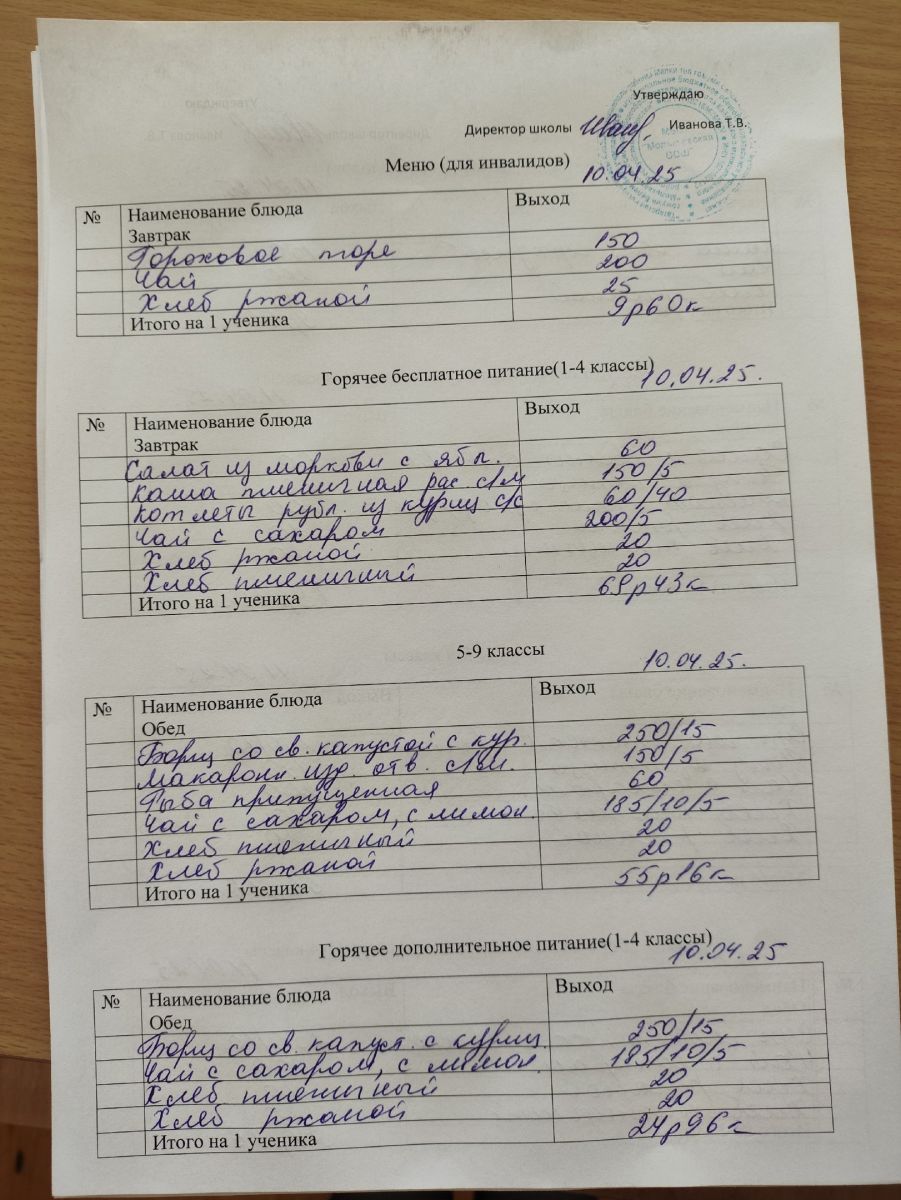 Утверждаю
Директор школы Иванова Т.В.
Меню (для инвалидов) 10.04.25
№ Наименование блюда Выход
Завтрак
Гороховое пюре 150
Чай 200
Хлеб ржаной 25
Итого на 1 ученика 9р60к
Горячее бесплатное питание(1-4 классы) 10.04.25.
№ Наименование блюда Выход
Завтрак
Салат из моркови с ябл. 60
Каша пшеничная рас. с/м 150/5
Котлеты рубл. из куриц с/с 60/40
Чай с сахаром 200/5
Хлеб ржаной 20
Хлеб пшеничный 20
Итого на 1 ученика 69р43к
5-9 классы 10.04.25.
№ Наименование блюда Выход
Обед
Борщ со св. капустой с кур. 250/15
Макаронн. изд. отв. с/м. 150/5
Рыба припущенная 60
Чай с сахаром, с лимон. 185/10/5
Хлеб пшеничный 20
Хлеб ржаной 20
Итого на 1 ученика 55р16к
Горячее дополнительное питание(1-4 классы) 10.04.25
№ Наименование блюда Выход
Обед
Борщ со св. капуст. с куриц. 250/15
Чай с сахаром, с лимон. 185/10/5
Хлеб пшеничный 20
Хлеб ржаной 20
Итого на 1 ученика 24р96к